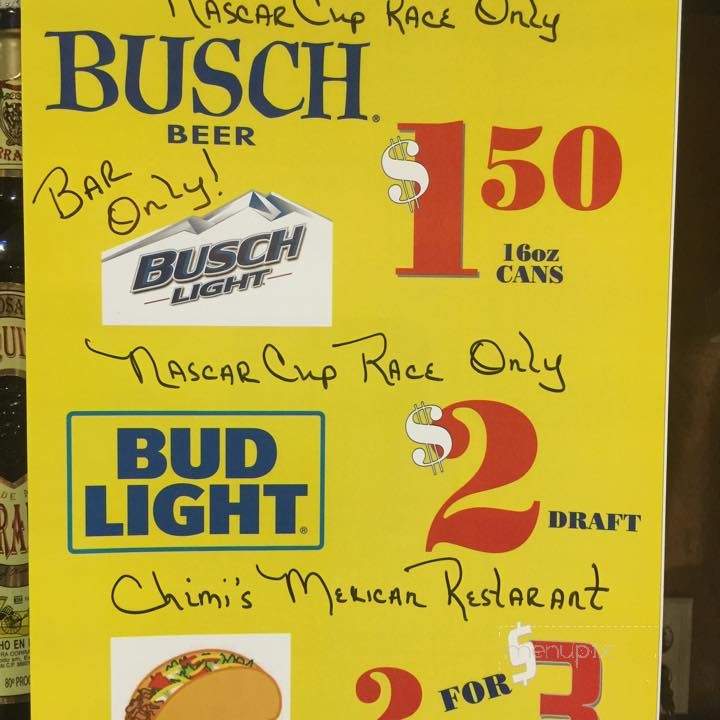 Nascar Cup Race Only
BUSCH
BEER
$1 50
16oz
CANS
Bar
Only!
BUSCH
LIGHT
Nascar Cup Race Only
BUD
LIGHT
$2
DRAFT
Chimi's Mexican Restarant
2 FOR $3
menupix
80º PROO